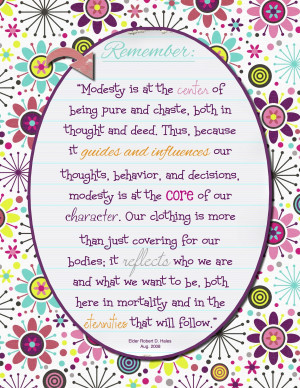 Remember:
"Modesty is at the center of
being pure and chaste, both in
thought and deed. Thus, because
it guides and influences our
thoughts, behavior, and decisions,
modesty is at the core of our
character. Our clothing is more
than just covering for our
bodies; it reflects who we are
and what we want to be, both
here in mortality and in the
eternities that will follow."
Elder Robert D. Hales
Aug. 2008